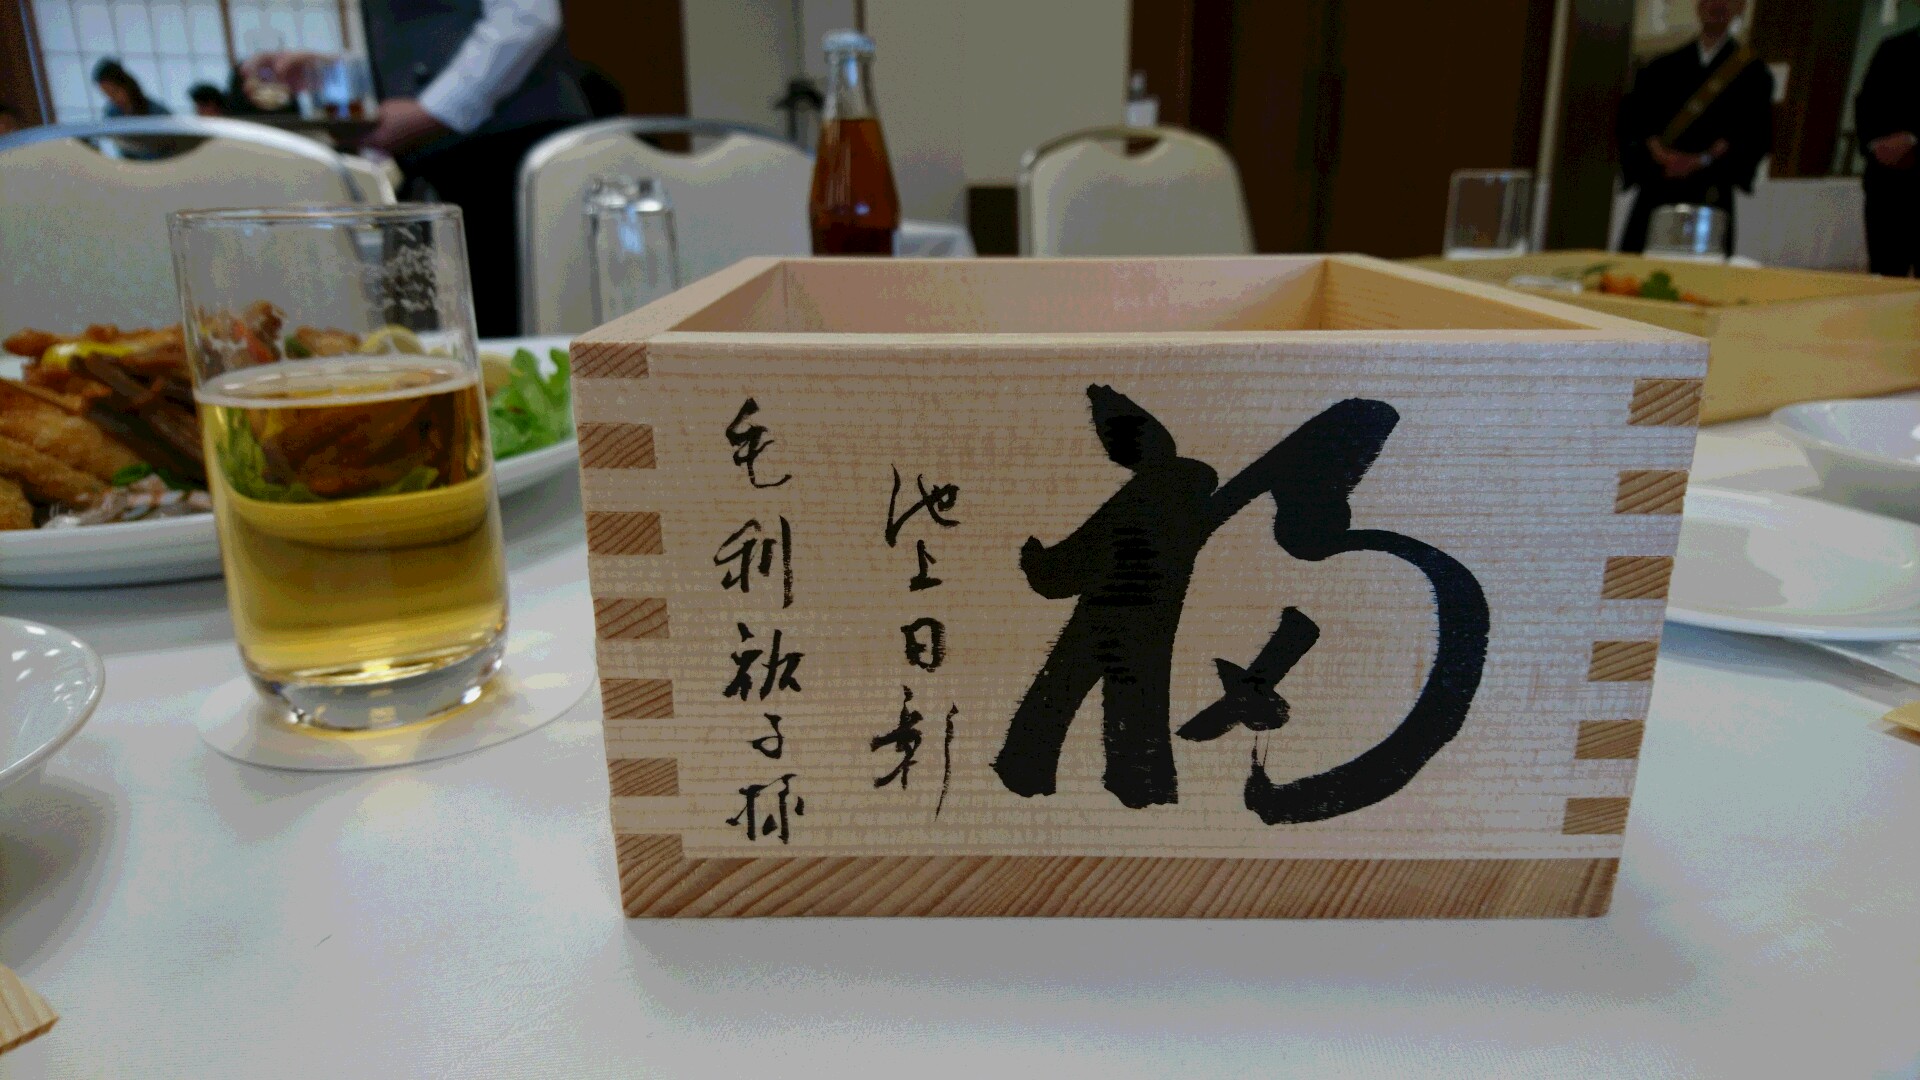 福
池上日彰
毛利祐子様